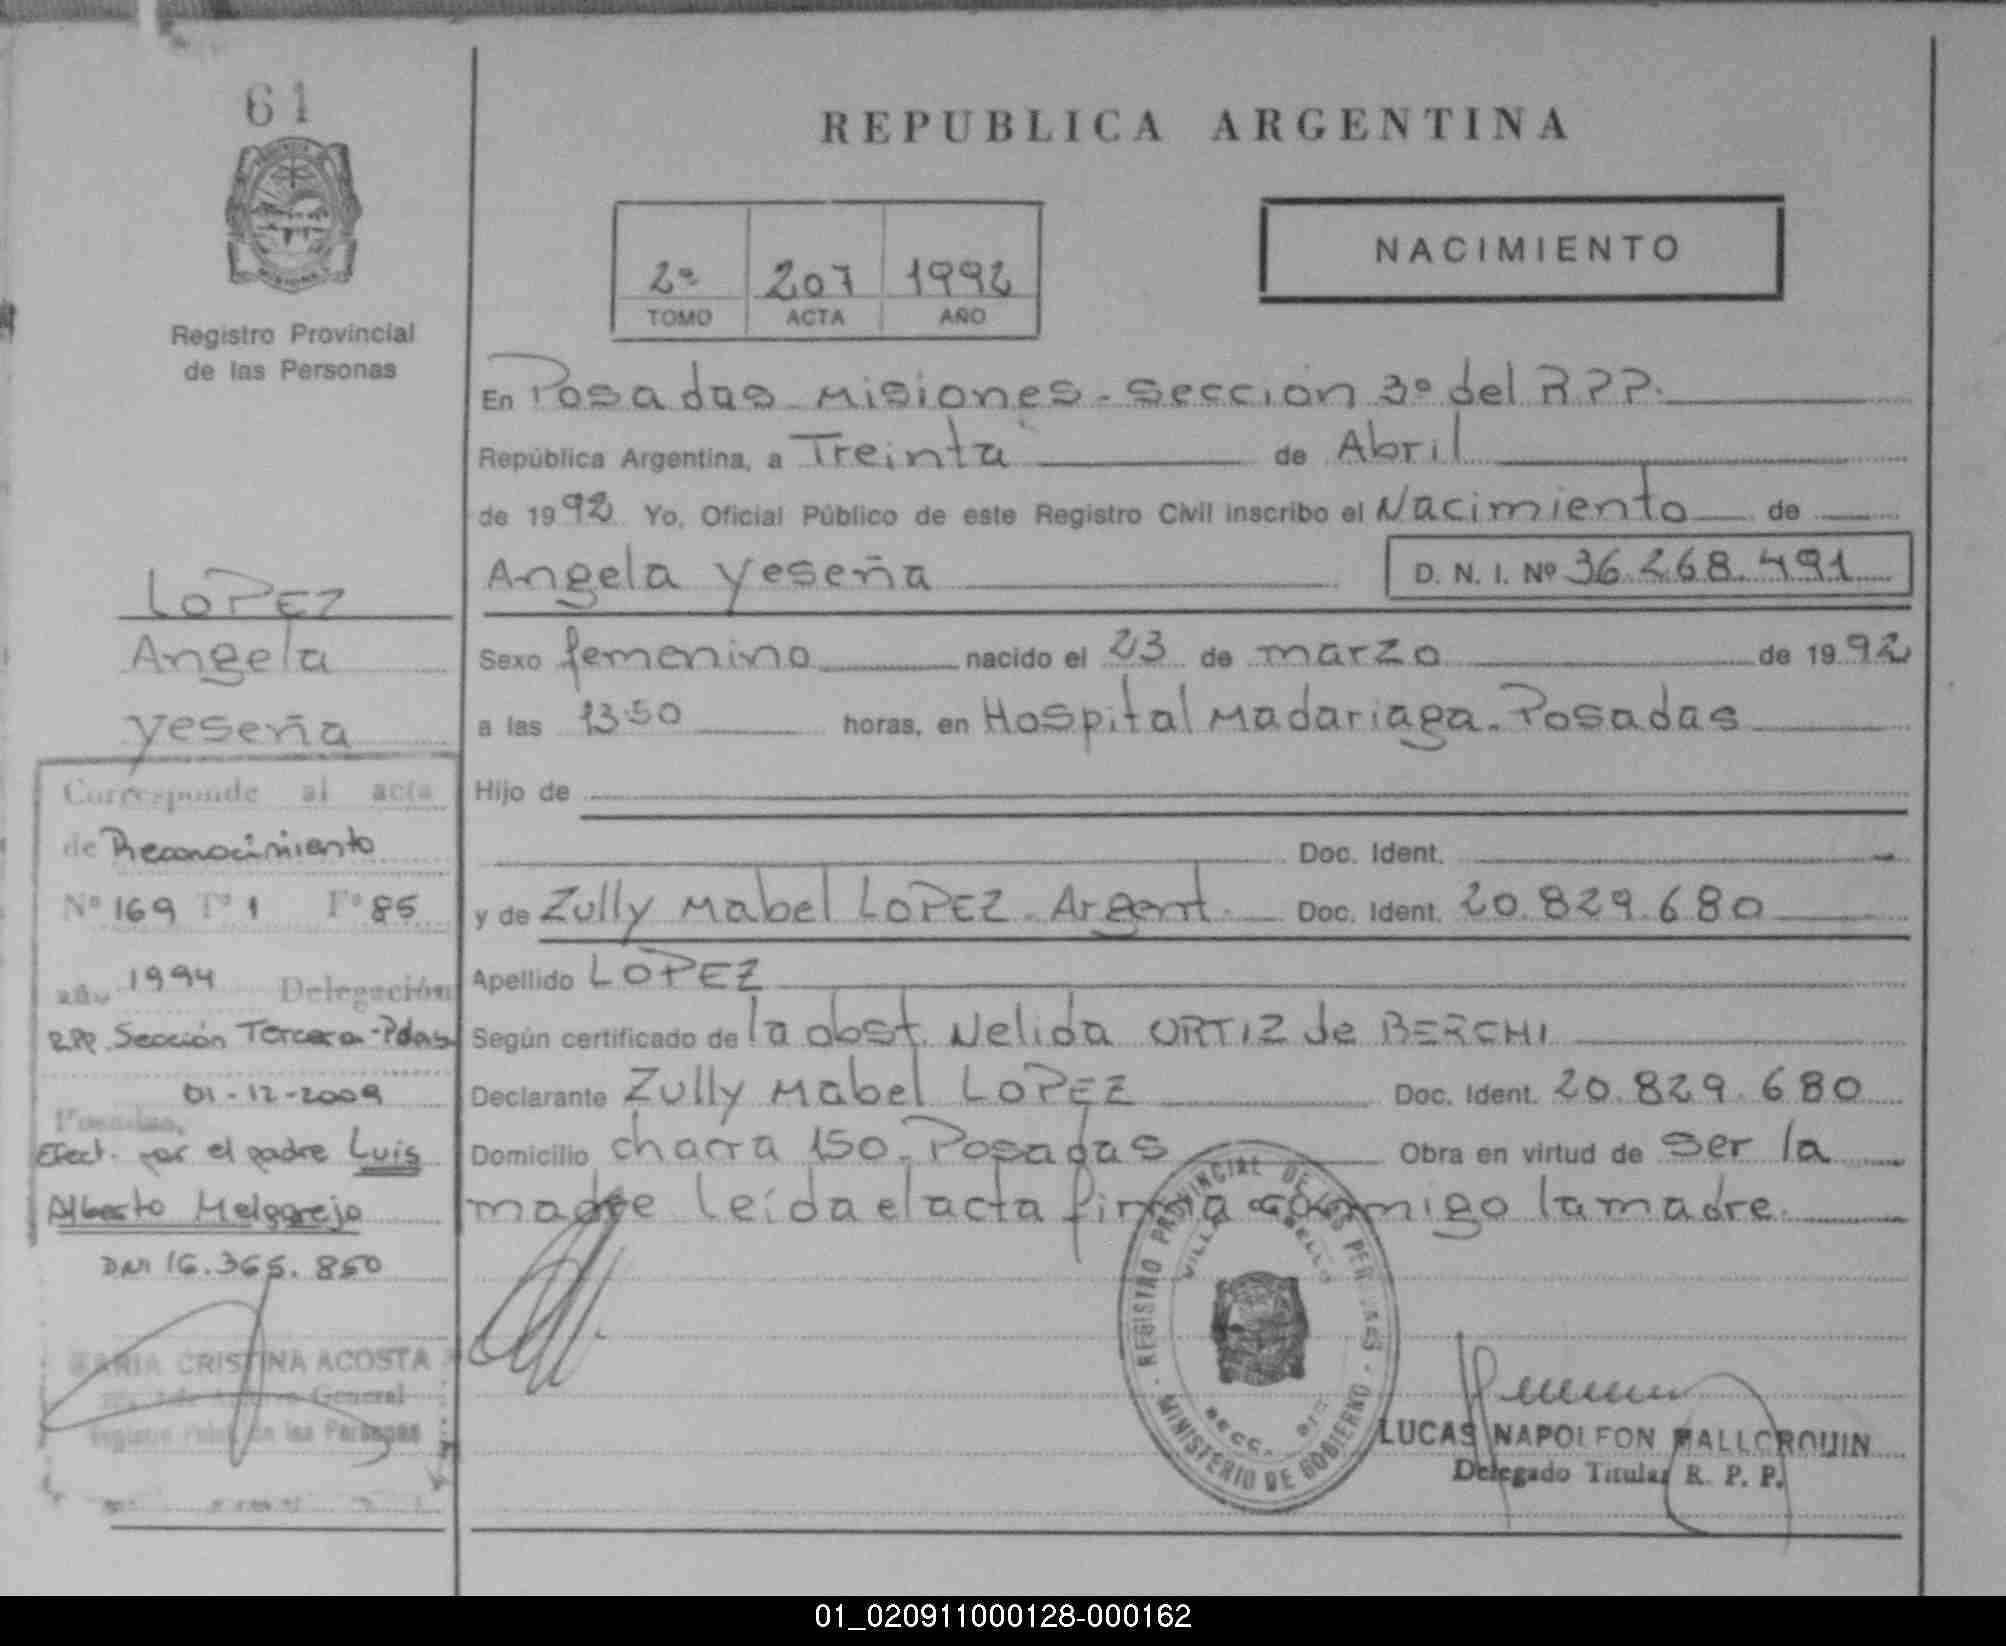 61
Registro Provincial
de las Personas
LOPEZ
Angela
Yeseña
Corresponde al acta
de Reconocimiento
Nº 169 Tº 1 Fº 85
año 1994 Delegación
RPP. Sección Tercera - Pdas
01-12-2009
Posadas,
Efect. por el padre Luis
Alberto Melgarejo
DNI 16.365.850
MARIA CRISTINA ACOSTA
General
de las Personas
REPUBLICA ARGENTINA
NACIMIENTO
2º 207 1992
TOMO ACTA AÑO
En Posadas Misiones - Sección 3º del R.P.P.
República Argentina, a Treinta de Abril
de 1992 Yo, Oficial Público de este Registro Civil inscribo el Nacimiento de
Angela Yeseña D. N. I. Nº 36.268.491
Sexo femenino nacido el 23 de marzo de 1992
a las 13:50 horas, en Hospital Madariaga - Posadas
Hijo de
Doc. Ident.
y de Zully Mabel LOPEZ - Argent. Doc. Ident. 20.829.680
Apellido LOPEZ
Según certificado de la obst. Nelida ORTIZ de BERCHI
Declarante Zully Mabel LOPEZ Doc. Ident. 20.829.680
Domicilio chacra 150 - Posadas Obra en virtud de ser la
madre leída el acta firma conmigo la madre.
REGISTRO PROVINCIAL DE LAS PERSONAS - MINISTERIO DE GOBIERNO -
SECC.
LUCAS NAPOLEON MALLORQUIN
Delegado Titular R. P. P.
01_020911000128-000162